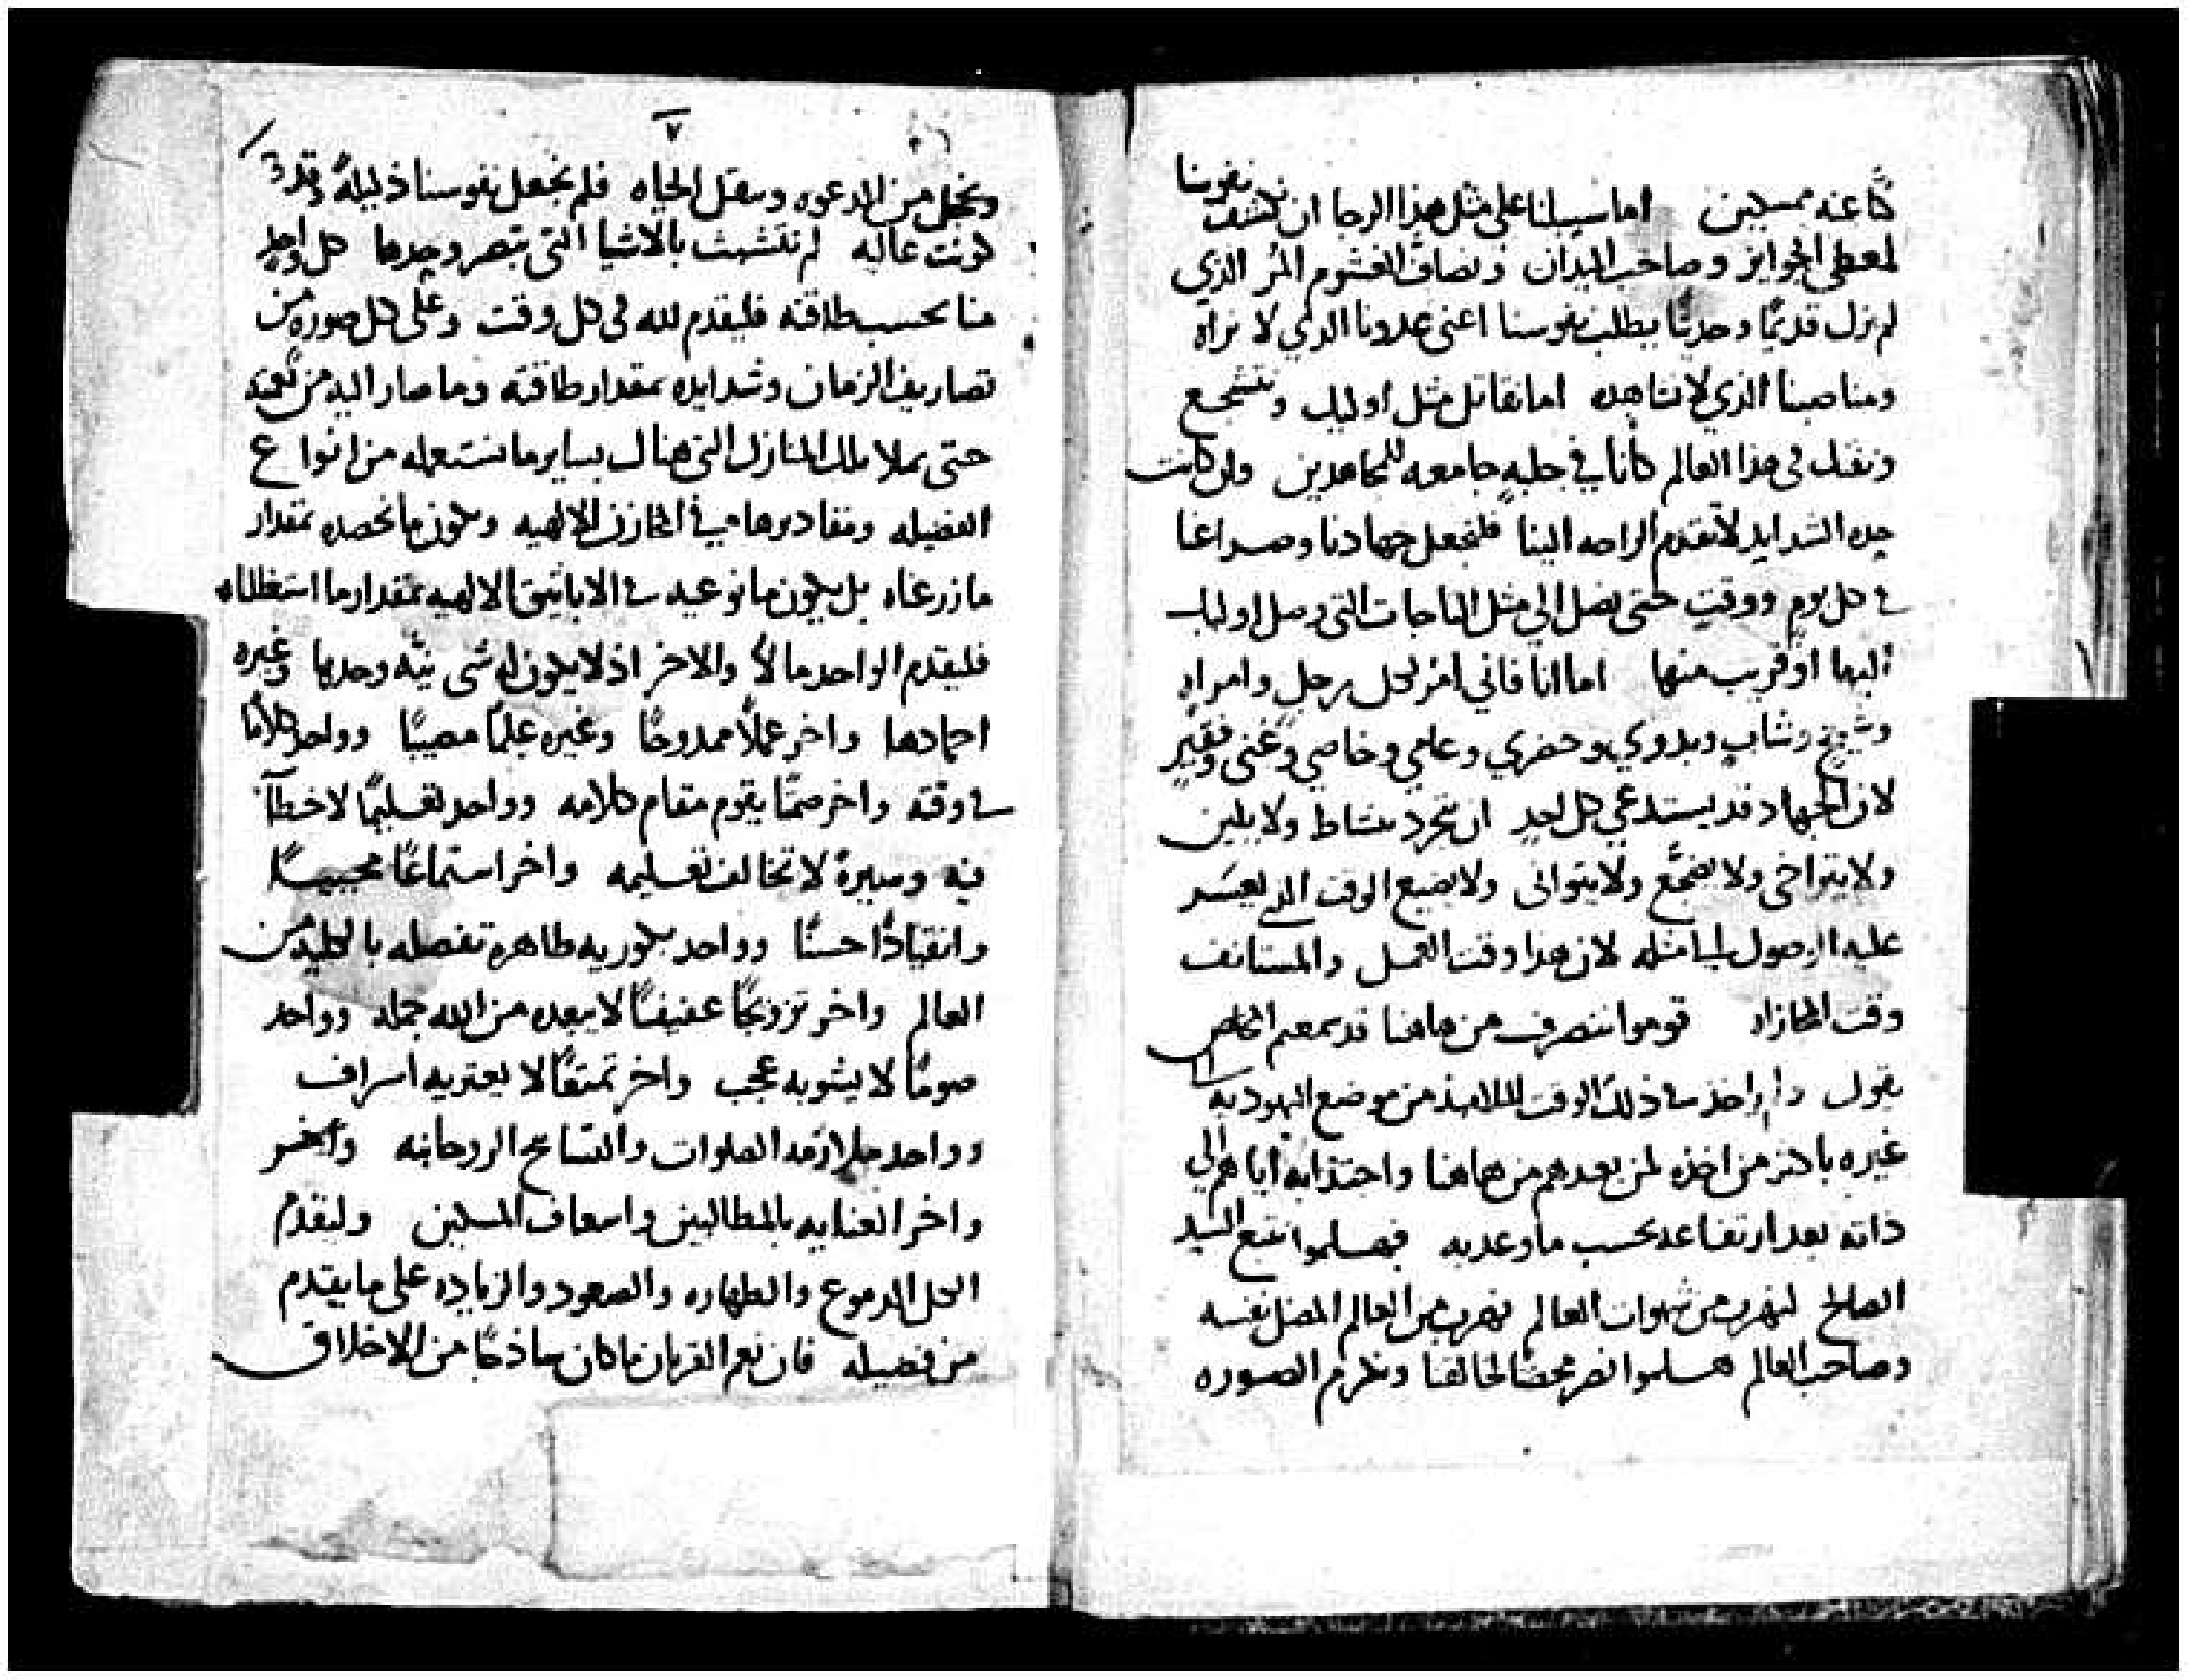 كنا عنه ممسكين اما سبيلنا على مثل هذا الرجا ان نكشف نفوسنا
لمعطى الجوايز وصاحب الميدان ونصاف الغشوم المر الذي
لم نزل قديمًا وحديثًا يطلب نفوسنا اعنى عدونا الذي لا نراه
ومناصبنا الذي لا نشاهده اما نقاتل مثل اوليك ونتشجع
ونقف فى هذا العالم كأنا في حلبهٍ جامعه للمجاهدين ولو كانت
حده الشدايد لا تقدم الراحه الينا فلنجعل جهادنا وصراعنا
في كل يومٍ ووقتٍ حتى نصل الي مثل التاجات التي وصل اوليك
أليها او قريب منها اما انا فاني امرٌ لكل رجلٍ وامراهٍ
وشيخٍ وشابٍ وبدوي وحضري وعامي وخاصي وغنى وفقيرٍ
لان الجهاد قد يستدعي كل احدٍ ان يتجرد بنشاط ولا يلين
ولا يتراخى ولا يضجَّع ولا يتوانى ولا يضيع الوقت الذي يعسَر
عليه الوصول الى مثله لان هذا وقت العمل والمستانف
وقت المجازاه قوموا ننصرف من هاهنا قد سمعتم المخلص
يقول وان اخذ في ذلك الوقت التلاميذ من موضع اليهوديه
غيره باكثر من اخذه لمن بعدهم من هاهنا واجتذابه اياهم الي
ذاته بعد ارتفاعه بحسب ما وعد به فهلموا نتبع السيد
الصالح لنهرب من شهوات العالم نهرب من العالم المضل نفسه
وصاحب العالم هلموا نصر محضًا لخالقنا ونكرم الصوره
٧
ونخجل من الدعوه وننقل الحياه فلم نجعل نفوسنا ذليلةً وقد
كونت عاليه لم نتشبث بالاشيا التي تبصر وحدها كل واحدٍ
منا بحسب طاقته فليقدم لله فى كل وقت وعلى كل صوره من
تصاريف الزمان وشدايده بمقدار طاقته وما صار اليه من نعمه
حتى يملا تلك المنازل التي هناك بساير ما نستعمله من انواع
الفضيله ومقاديرها في المخازن الالهيه ويكون ما نحصده بمقدار
ما زرعناه بل يكون ما نوعيه في الاباثيق الالهيه بمقدار ما استغللناه
فليقدم الواحد مالًا والاخر اذ لا يكون له شى نيّه وحدها وغيره
اجتهادها واخر عملًا ممدوحًا وغيره علمًا مصيبًا وواحد كلامًا
في وقته واخر صمتًا يقوم مقام كلامه وواحد تعليمًا لا خطأ
فيه وسيرةً لا تخالف تعليمه واخر استماعًا مجيبًا
وانقيادًا حسنًا وواحد بكوريه طاهره تفصله بالكليه من
العالم واخر تزويجًا عفيفًا لا يبعده من الله جمله وواحد
صومًا لا يشوبه عجب واخر تمتعًا لا يعتريه اسراف
وواحد ملازمه الصلوات والتسابيح الروحانيه
واخر العنايه بالمطالبين واسعاف المسكين وليقدم
الكل الدموع والطهاره والصعود والزياده على ما يتقدم
من فضيله فان نعم القربان ما كان ساذجًا من الاخلاق